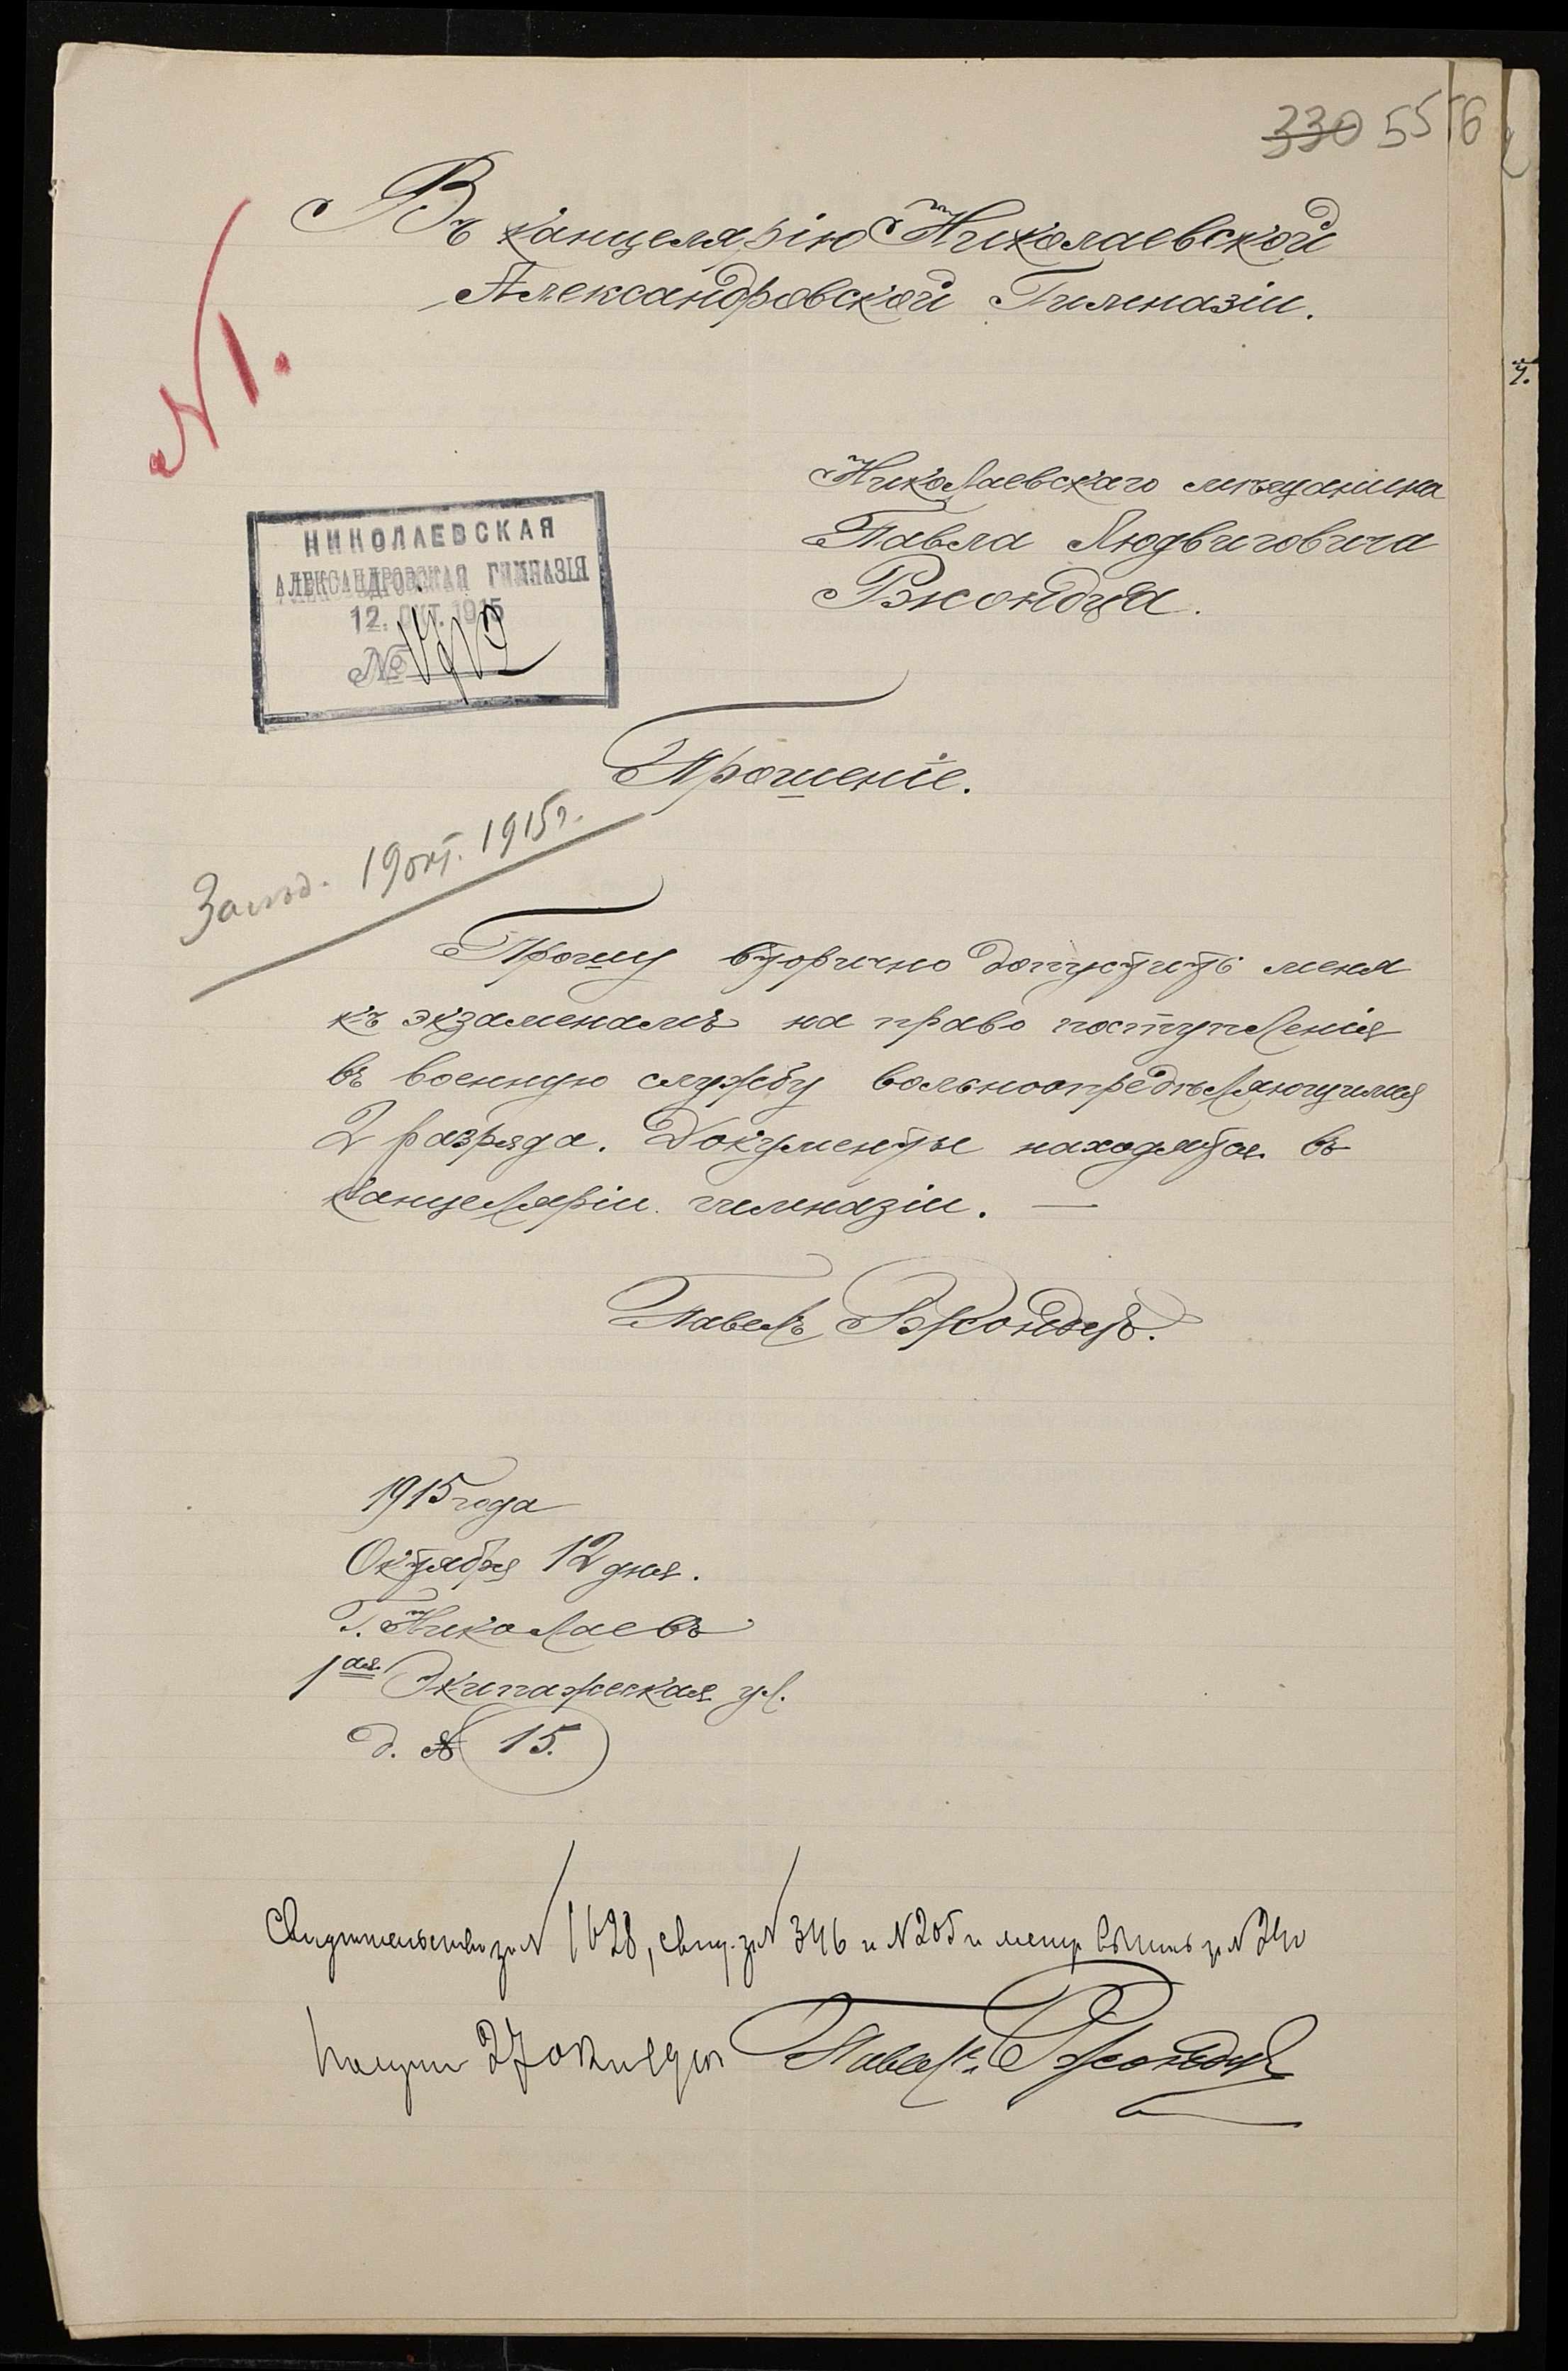 330 55
Въ канцелярію Николаевской
Александровской Гимназіи.
№ 1.
Николаевскаго мѣщанина
Павла Людвиговича
Ржондца.
НИКОЛАЕВСКАЯ
АЛЕКСАНДРОВСКАЯ ГИМНАЗІЯ
12. ОКТ. 1915
№
Прошеніе.
19 окт. 1915 г.
Прошу вторично допустить меня
къ экзаменамъ на право поступленія
въ военную службу вольноопредѣляющимся
2 разряда. Документы находятся въ
канцеляріи гимназіи. —
Павелъ Ржондецъ.
1915 года
Октября 12 дня.
Г. Николаевъ
1ая Экипажеская ул.
д. № 15.
Свидѣтельство за № 1628, свид. за № 346 и № 205 и метр. за № 240
27 окт Павелъ Ржондецъ